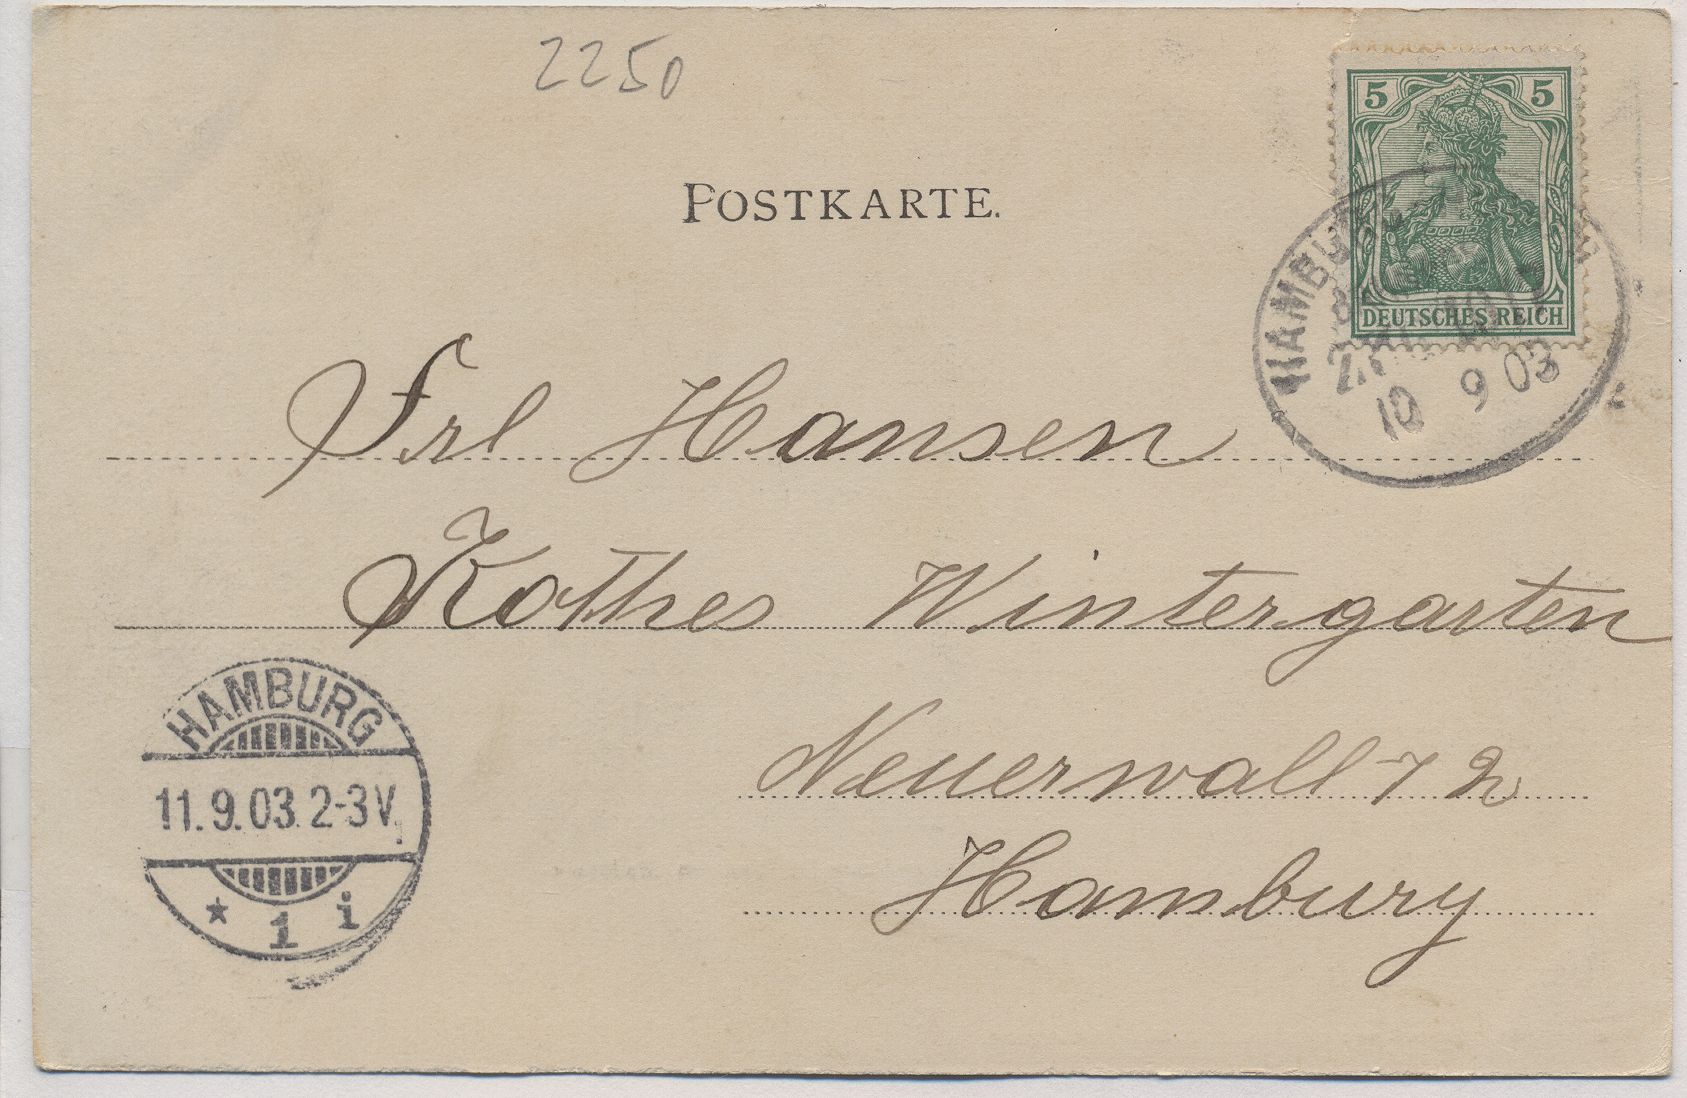 2250
POSTKARTE.
5 5
DEUTSCHES REICH
HAMBURG
10 9 03
Frl Hansen
Kothes Wintergarten
Neuerwall 72
Hamburg
HAMBURG
11.9.03. 2-3V.
* 1 i